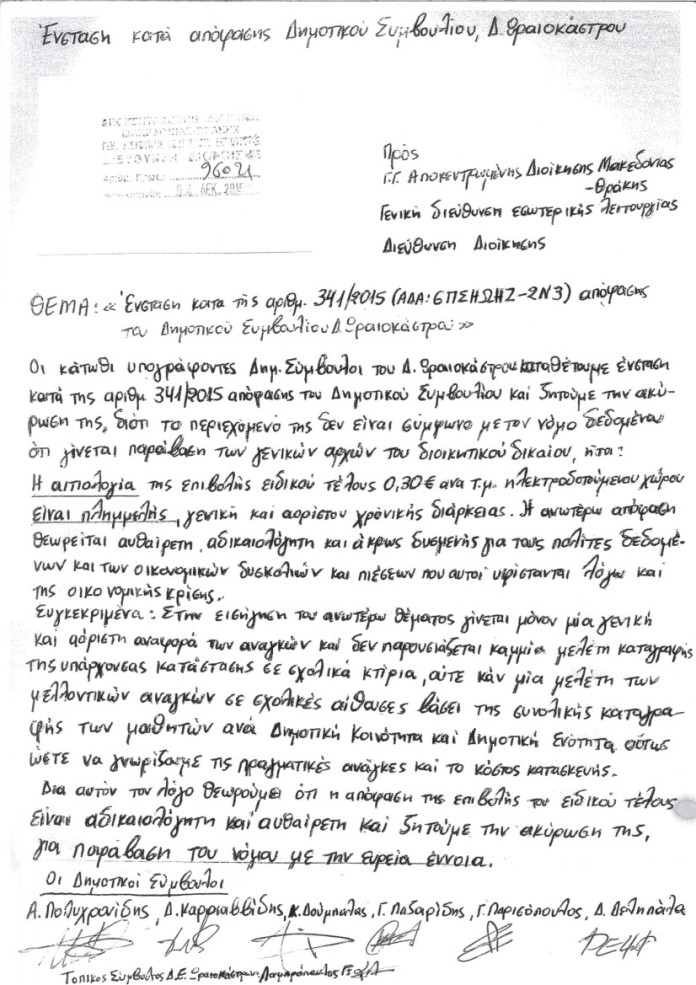 Ένσταση κατά απόφασης Δημοτικού Συμβουλίου, Δ. Ωραιοκάστρου
96021
04 ΔΕΚ. 2015
Προς
Γ.Γ. Αποκεντρωμένης Διοίκησης Μακεδονίας
-Θράκης
Γενική διεύθυνση εσωτερικής λειτουργίας
Διεύθυνση Διοίκησης
ΘΕΜΑ: «Ένσταση κατά της αριθμ. 341/2015 (ΑΔΑ: 6ΠΣΗΩΗΖ-2Ν3) απόφασης
του Δημοτικού Συμβουλίου Δ. Ωραιοκάστρου»
Οι κάτωθι υπογράφοντες Δημ. Σύμβουλοι του Δ. Ωραιοκάστρου καταθέτουμε ένσταση
κατά της αριθμ 341/2015 απόφασης του Δημοτικού Συμβουλίου και ζητούμε την ακύ-
ρωση της, διότι το περιεχόμενό της δεν είναι σύμφωνο με τον νόμο δεδομένου
ότι γίνεται παράβαση των γενικών αρχών του διοικητικού δικαίου, ήτοι:
Η αιτιολογία της επιβολής ειδικού τέλους 0,30€ ανά τ.μ. ηλεκτροδοτούμενου χώρου
είναι πλημμελής, γενική και αορίστου χρονικής διάρκειας. Η ανωτέρω απόφαση
θεωρείται αυθαίρετη, αδικαιολόγητη και άκρως δυσμενής για τους πολίτες δεδομέ-
νων και των οικονομικών δυσκολιών και πιέσεων που αυτοί υφίστανται λόγω και
της οικονομικής κρίσης.
Συγκεκριμένα: Στην εισήγηση του ανωτέρω θέματος γίνεται μόνον μία γενική
και αόριστη αναφορά των αναγκών και δεν παρουσιάζεται καμμία μελέτη καταγραφής
της υπάρχουσας κατάστασης σε σχολικά κτίρια, ούτε κάν μία μελέτη των
μελλοντικών αναγκών σε σχολικές αίθουσες βάσει της συνολικής καταγρα-
φής των μαθητών ανά Δημοτική Κοινότητα και Δημοτική Ενότητα ούτως
ώστε να γνωρίζουμε τις πραγματικές ανάγκες και το κόστος κατασκευής.
Δια αυτόν τον λόγο θεωρούμε ότι η απόφαση της επιβολής του ειδικού τέλους
είναι αδικαιολόγητη και αυθαίρετη και ζητούμε την ακύρωση της,
για παράβαση του νόμου με την ευρεία έννοια.
Οι Δημοτικοί Σύμβουλοι
Α. Πολυχρονίδης, Δ. Καρριαββίδης, Κ. Δούμπαλας, Γ. Λαζαρίδης, Γ. Παρισόπουλος, Δ. Δεληπάλα
Τοπικός Σύμβουλος Δ.Ε. Ωραιοκάστρου